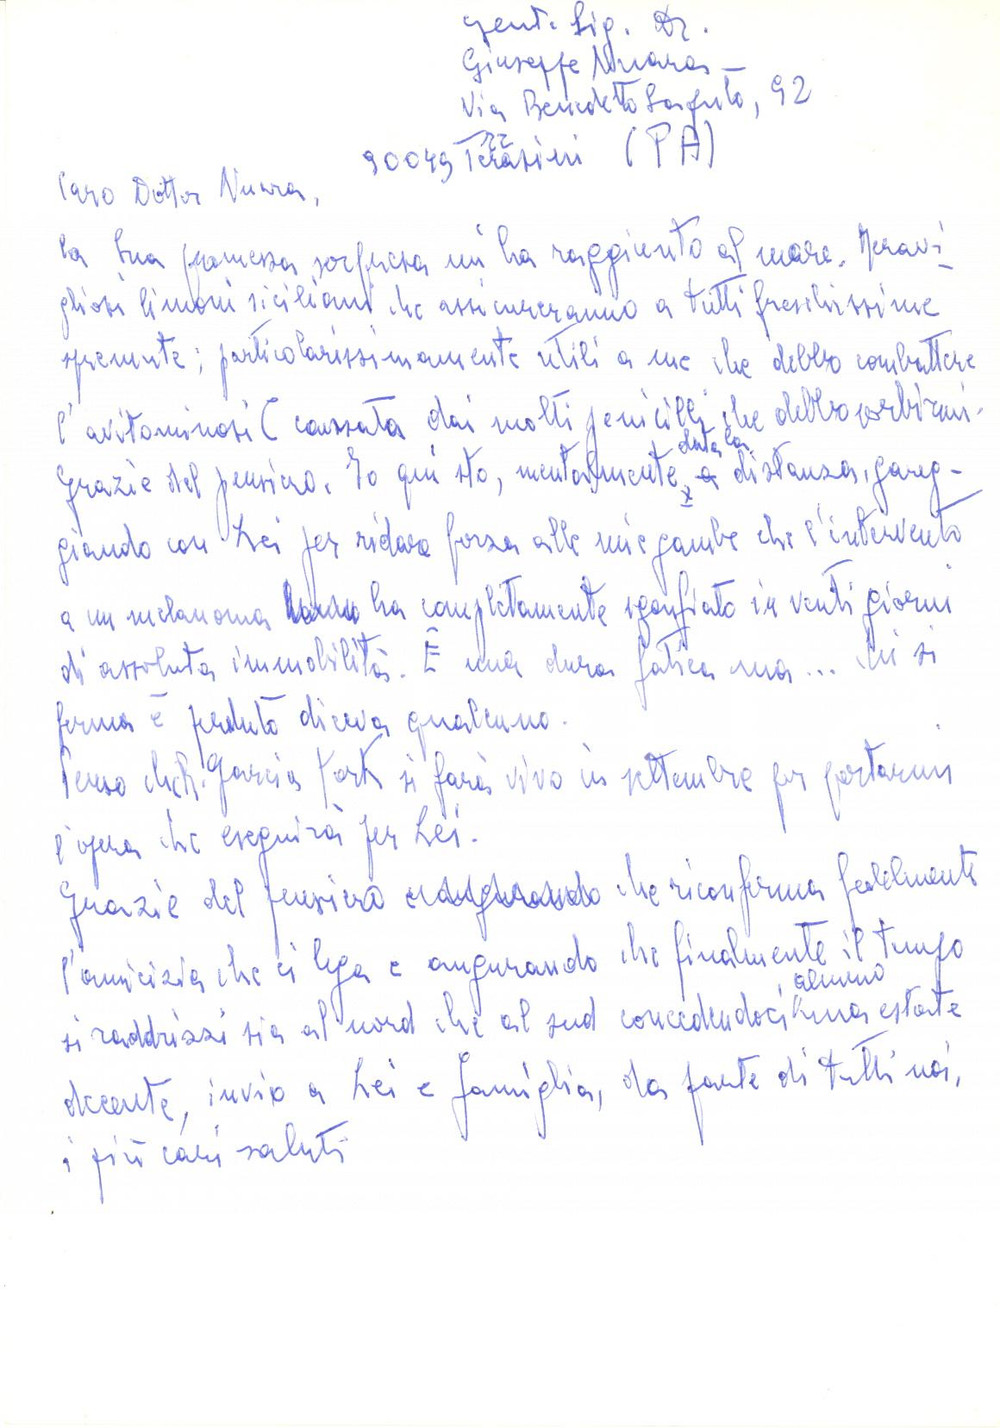 Gent. Sig. Dr.
Giuseppe Nuara
Via Benedetto Saputo, 92
90049 Terrasini (PA)
Caro Dottor Nuara,
la Sua promessa sorpresa mi ha raggiunto al mare. Meravi-
gliosi limoni siciliani che assicureranno a tutti freschissime
spremute; particolarissimamente utili a me che debbo combattere
l'avitaminosi (causata dai molti penicilli che debbo sorbirmi.
Grazie del pensiero. Io qui sto, mentalmente data la distanza, gareg-
giando con Lei per ridare forza alle mie gambe che l'intervento
a un melanoma ha completamente sgonfiato in venti giorni
di assoluta immobilità. È una dura fatica ma... chi si
ferma è perduto diceva qualcuno.
Penso che Garcia si farà vivo in settembre per portarmi
l'opera che eseguirà per Lei.
Grazie del pensiero che riconferma fedelmente
l'amicizia che ci lega e augurando che finalmente il tempo
si raddrizzi sia al nord che al sud concedendoci almeno una estate
decente, invio a Lei e famiglia, da parte di tutti noi,
i più cari saluti